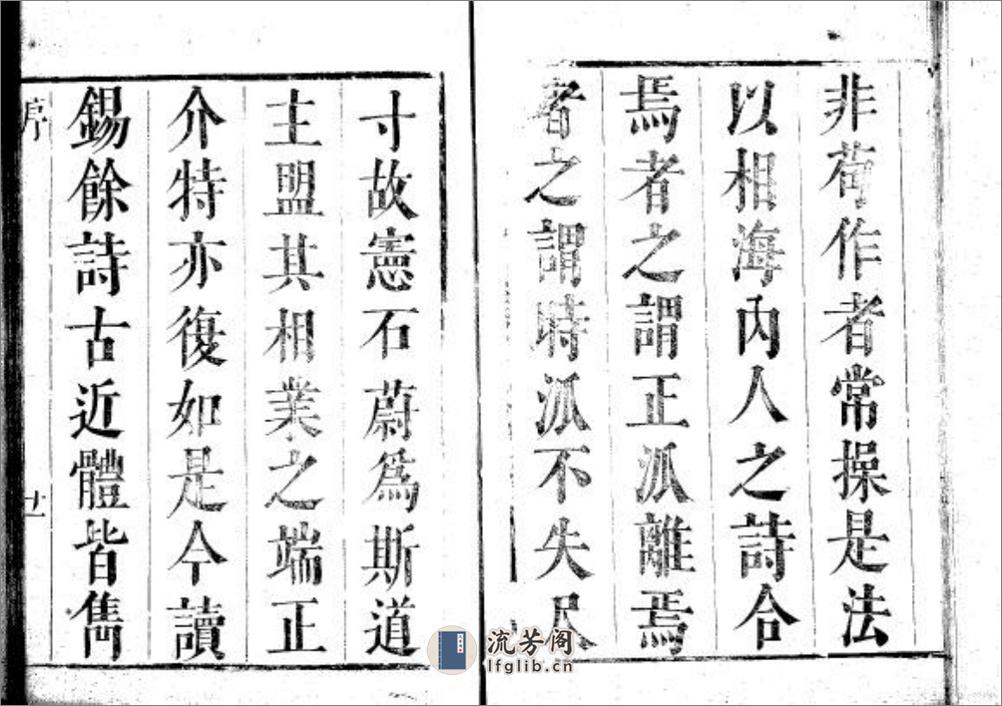 非苟作者常操是法
以相海內人之詩合
焉者之謂正派離焉
者之謂時派不失尺
寸故憲石蔚爲斯道
主盟其相業之端正
介特亦復如是今讀
錫餘詩古近體皆雋
序
十一
流芳阁
lfglib.cn